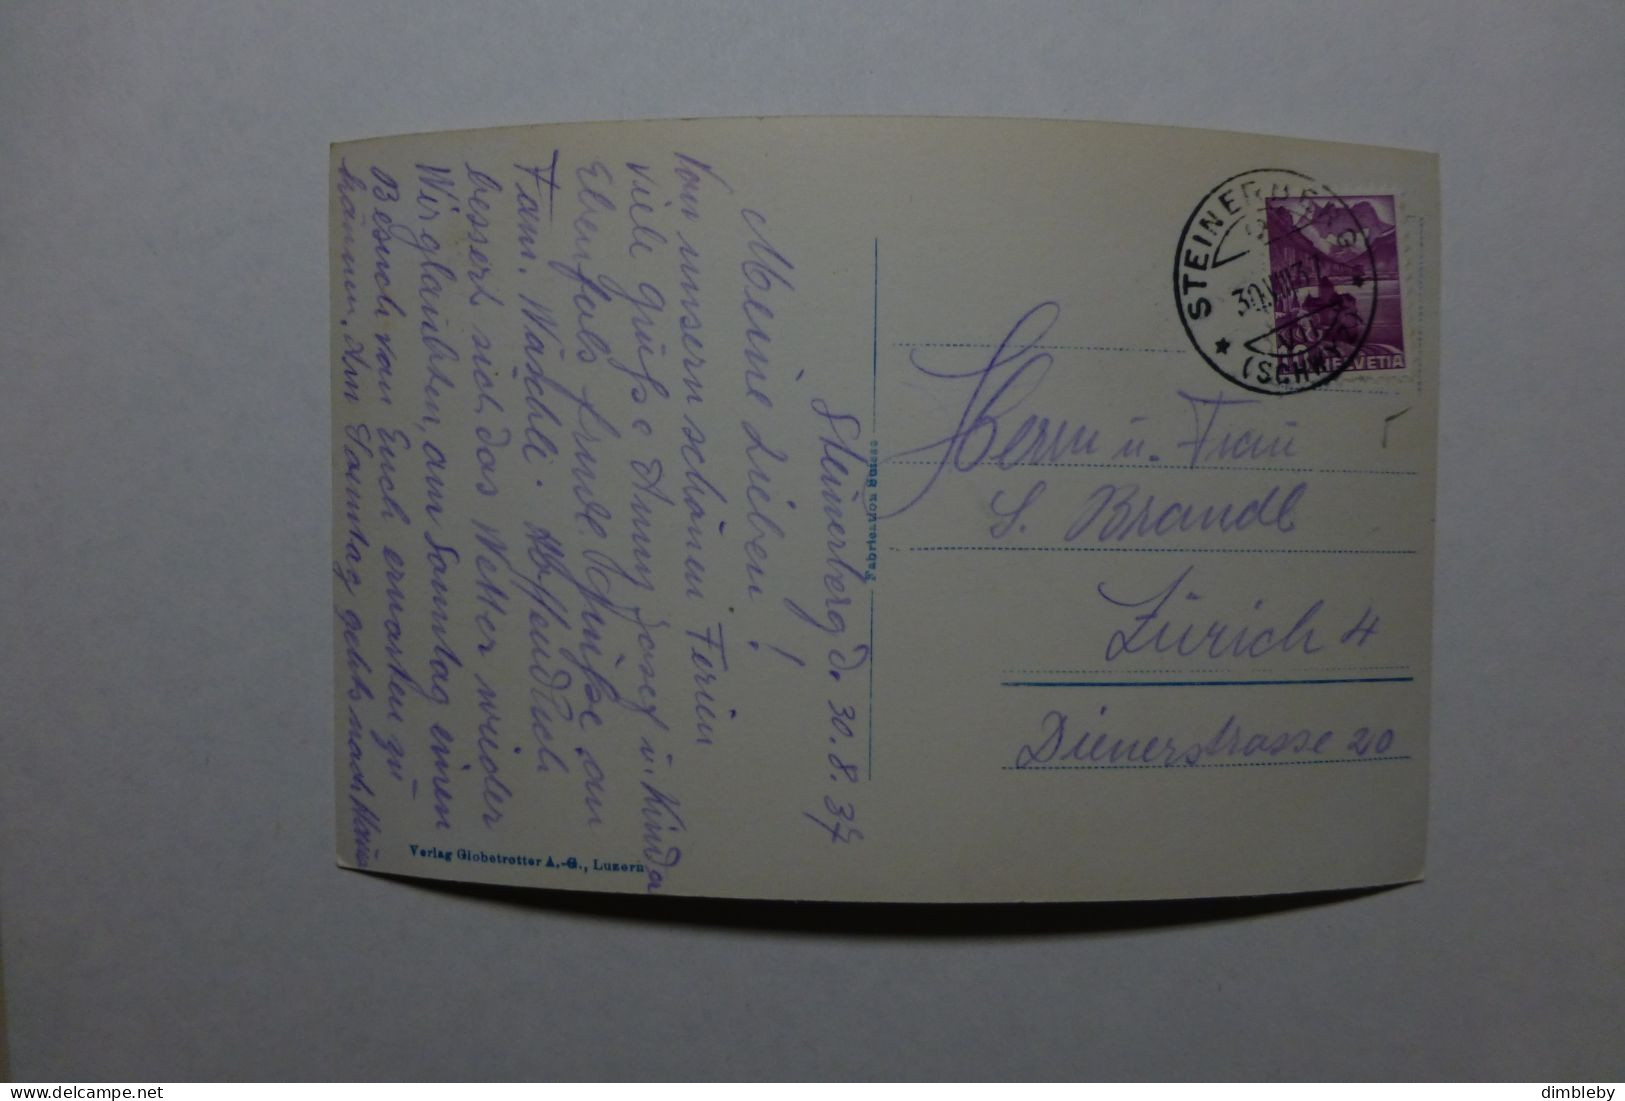 Steinerberg d. 30. 8. 37
Meine Lieben!
Von unsern schönen Ferien
viele Grüße Anny Josef u. Kinder
Ebenfals frndl. Grüße an
Fam. Wäschli. Hoffendlich
bessert sich das Wetter wieder
Wir glaubten, am Sonntag einen
Besuch von Euch erwarten zu
können. Am Sonntag gehts nach
Verlag Globetrotter A.-G., Luzern
Fabrication Suisse
STEINERBERG
30.VIII.37
(SCHWYZ)
HELVETIA
Herrn u. Frau
S. Brandl
Zürich 4
Dienerstrasse 20
delcampe.net
dimbleby